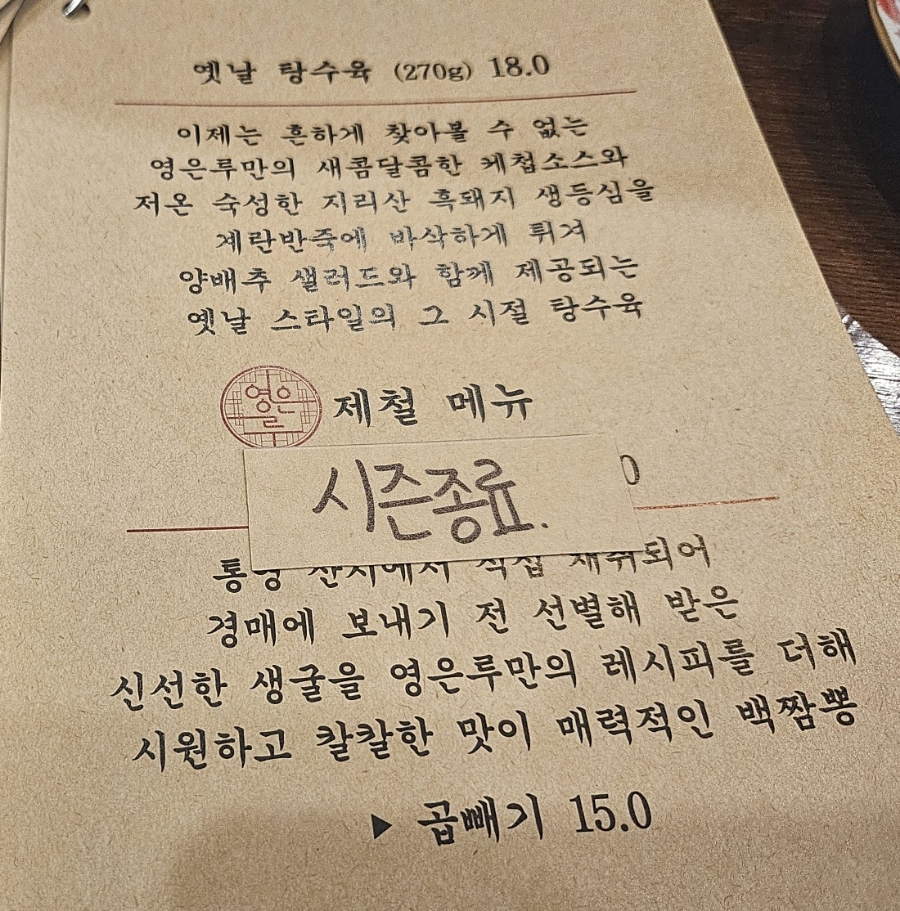 옛날 탕수육 (270g) 18.0
이제는 흔하게 찾아볼 수 없는
영은루만의 새콤달콤한 케첩소스와
저온 숙성한 지리산 흑돼지 생등심을
계란반죽에 바삭하게 튀겨
양배추 샐러드와 함께 제공되는
옛날 스타일의 그 시절 탕수육
영은루
제철 메뉴
0
시즌종료.
통영 산지에서 직접 채취되어
경매에 보내기 전 선별해 받은
신선한 생굴을 영은루만의 레시피를 더해
시원하고 칼칼한 맛이 매력적인 백짬뽕
▶ 곱빼기 15.0